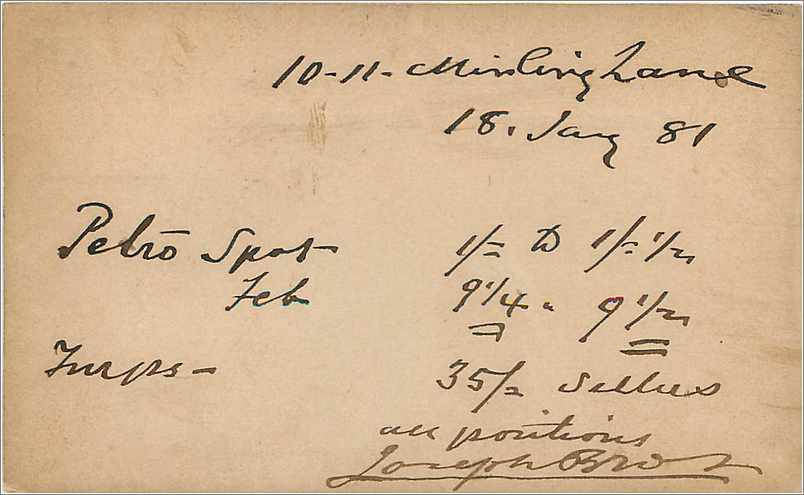 10-11- Mincing Lane
18. Jany 81
Petro Spot 1/= to 1/=½
Feb 9¼ " 9½
Turps - 35/= Sellers
all positions
Joseph Bros